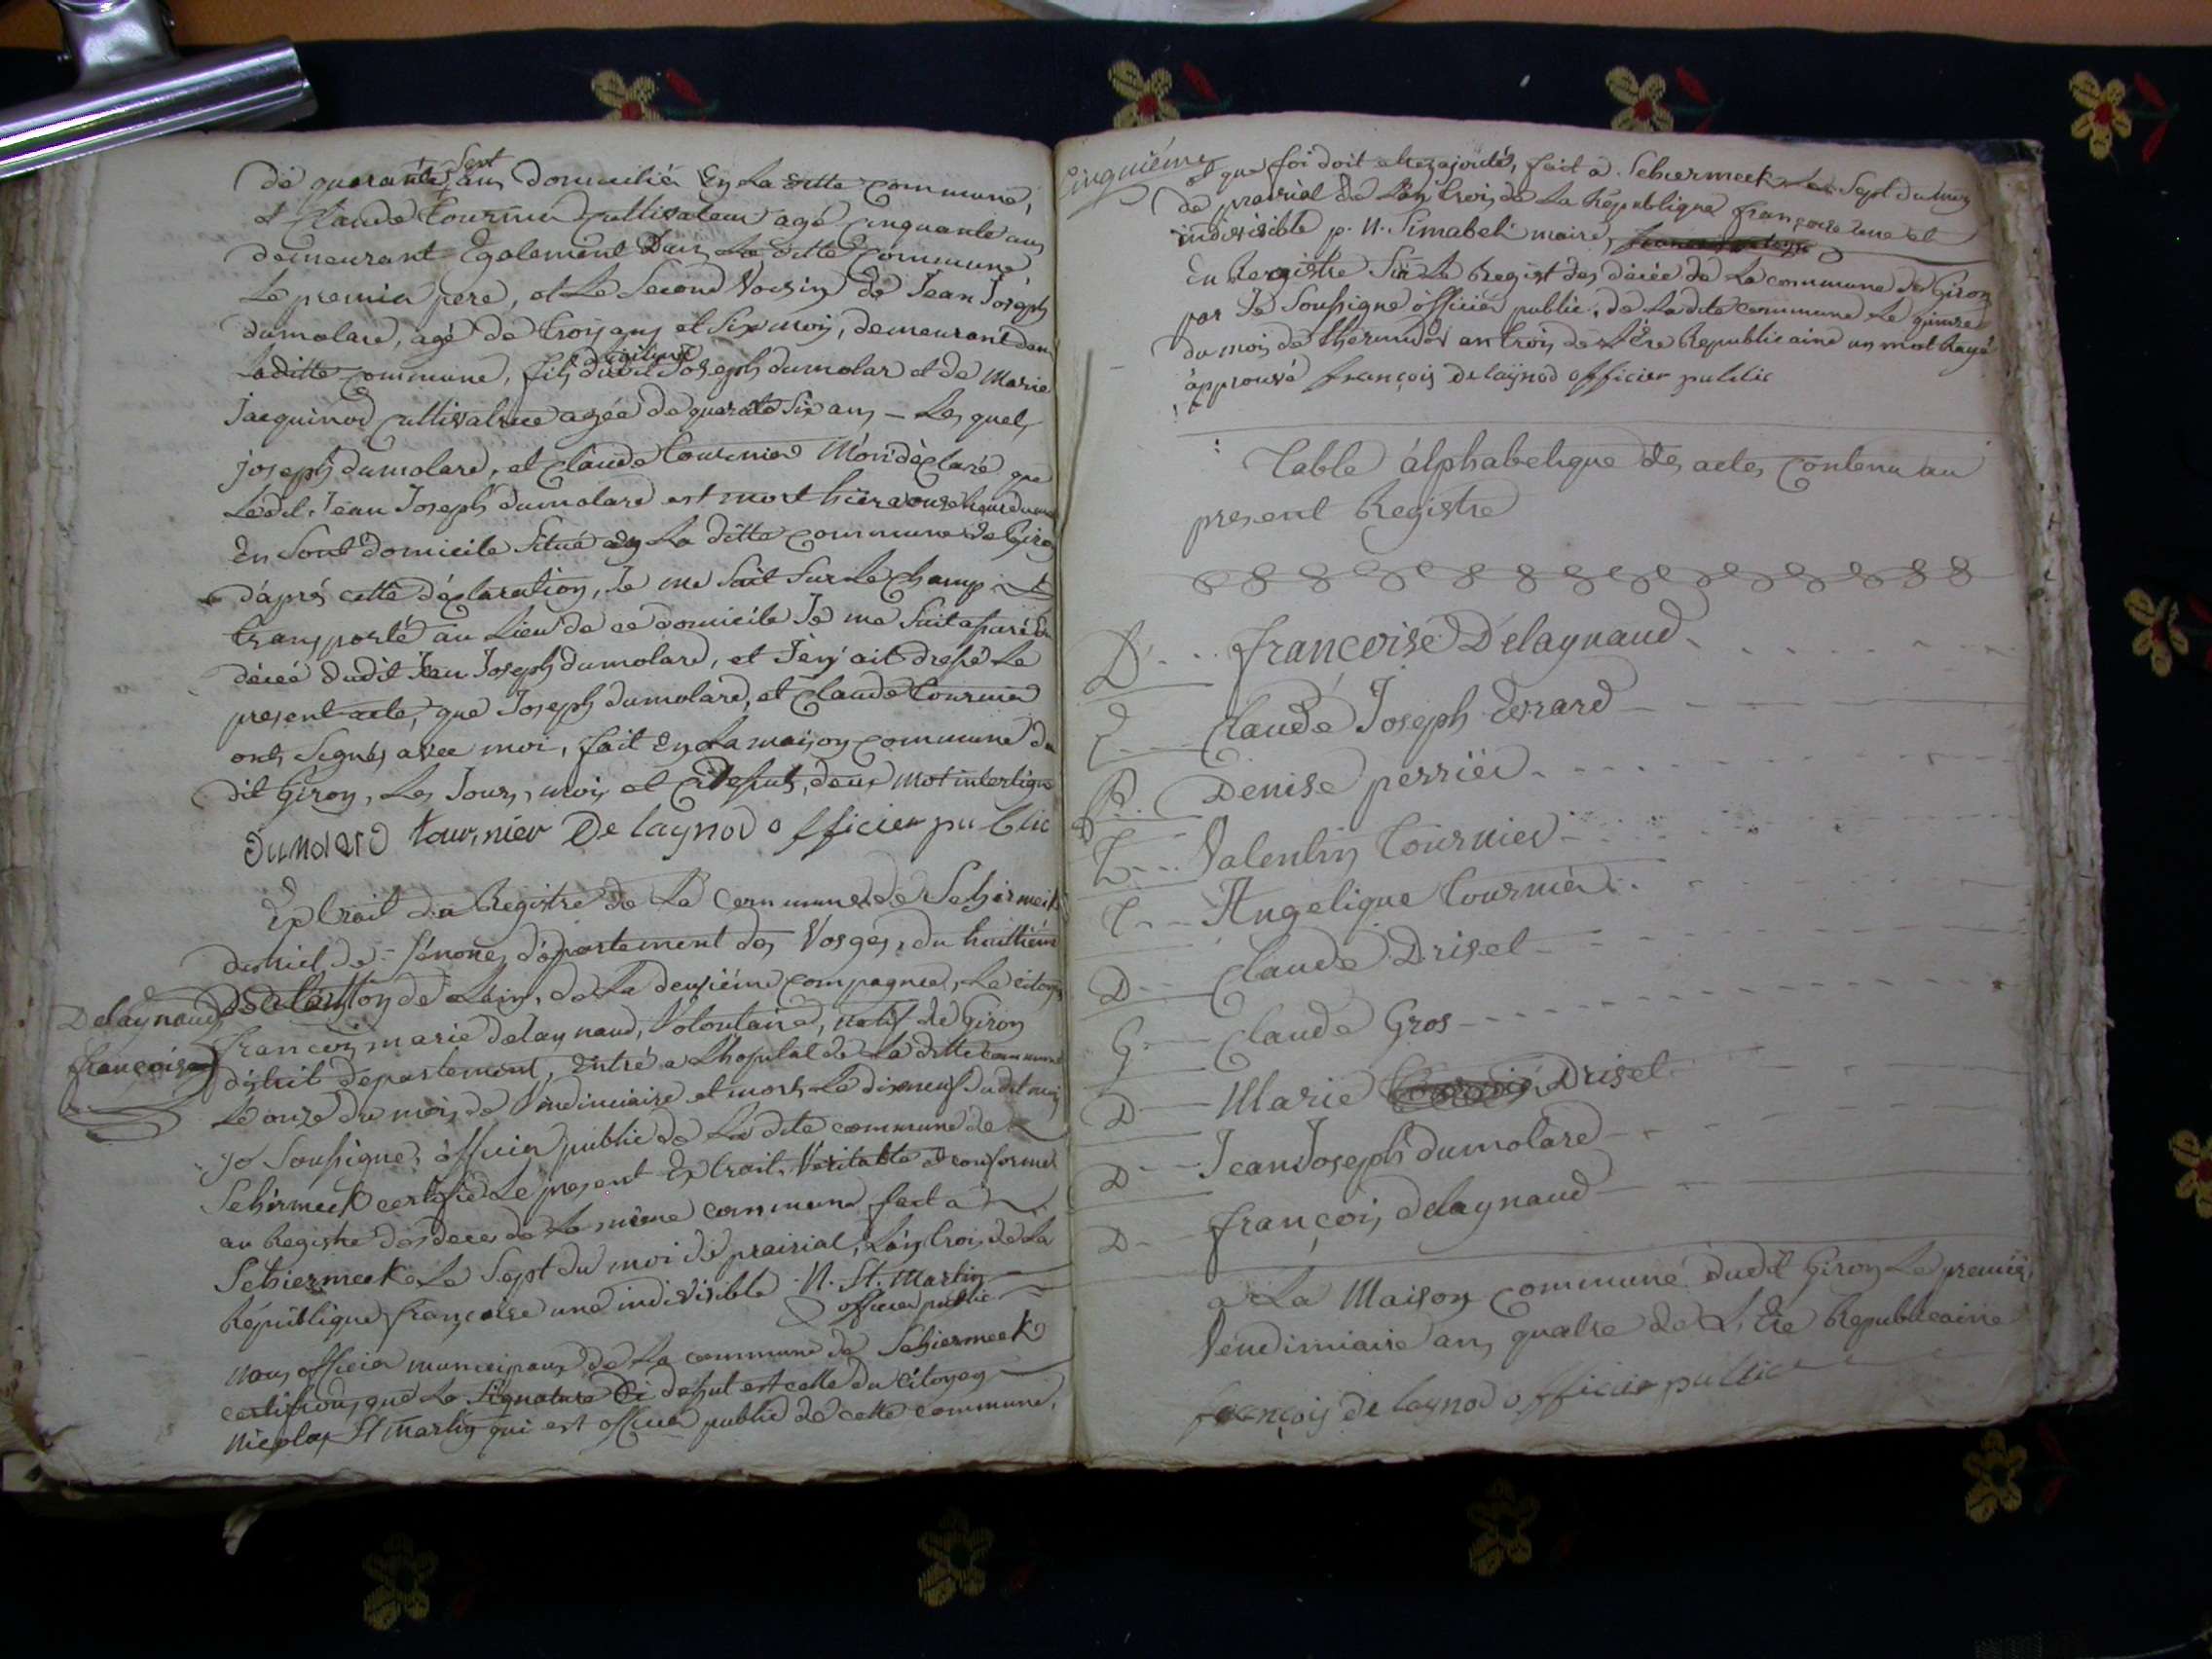 de quarante Sept ans domicilié En La ditte commune,
et Claude tournier cultivateur agé cinquante ans
demeurant Egalement Dans La ditte commune
Le premier pere, et Le Second Voisin de Jean Joseph
dumolard, agé de trois ans et Six mois, demeurant dans
laditte commune, fils légitime dudit Joseph dumolar et de Marie
Jacquinod cultivatrice agée de quarate Six ans – Les quels
joseph dumolard, et Claude tournier M'on déclaré que
Ledit Jean Joseph dumolard est mort hier a onze heure du
En Sont domicile Situé en La ditte commune de Giron
d'aprés cette déclaration, Je me Sait Sur Le champ
transporté au Lieu de ce domicile Je me Suit assuré Du
décée dudit Jean Joseph dumolard, et J'en ait dressé Le
present acte, que Joseph dumolard, et Claude tournier
ont Signés avec moi, fait En La maison commune du
dit Giron, Les Jours, mois et an dessus, deux mot interligne
Dumolard tournier De laynod officier public
Extrait du Registre de La Commune de Schirmeck
district de Sénones département des Vosges, du huittiéme
Bataillon de L'ain, de La deuxiéme compagnie, Le citoyen
Delaynaud
françois
francois marie delaynaud, Volontaire, natif de Giron
district departement, Entré a L'hopital de La ditte commune
Le onze du mois de Vendimiaire et mort Le dixneuf dudit mois
Je Soussigné, officier public de La dite commune de
Schirmeck certifie Le present Extrait Véritable et conforme
au Registre des deces de La même commune fait a
Schiermeck Le Sept du moi de prairial, L'an trois de La
République françoise une indivisible N. St. Martin
officier public
nous officier municipaux de La commune de Schiermeck
certifions que La Signature Ci dessut est celle du citoyen
Nicolas St Martin qui est officier public de cette commune,
Cinquième
et que foi doit etre ajoutés, fait a Schiermeck Le Sept du mois
de prairial de L'an trois de La République françoise une et
indivisible p. N. Simabel maire,
En Regisstre Sur Le Regist des décée de La commune de Giron
par Je Soussigné officier public, de Ladite commune Le quinze
du mois de thermidor an trois de L'Ere Republicaine un mot Rayé
approuvé françois delaynod officier public
Table alphabetique des actes contenu au
present Registre
D françoise Delaynaud
E Claude Joseph Evrard
P. Denise perrier
T Valentin tournier
T Angelique tournier
D Claude Drisel
G Claude Gros
D Marie Drisel
D Jean Joseph dumolard
D françois delaynaud
a La Maison commune dudit Giron Le premier
Vendimiaire an quatre de L'Ere Republicaine
françois de laynod officier public